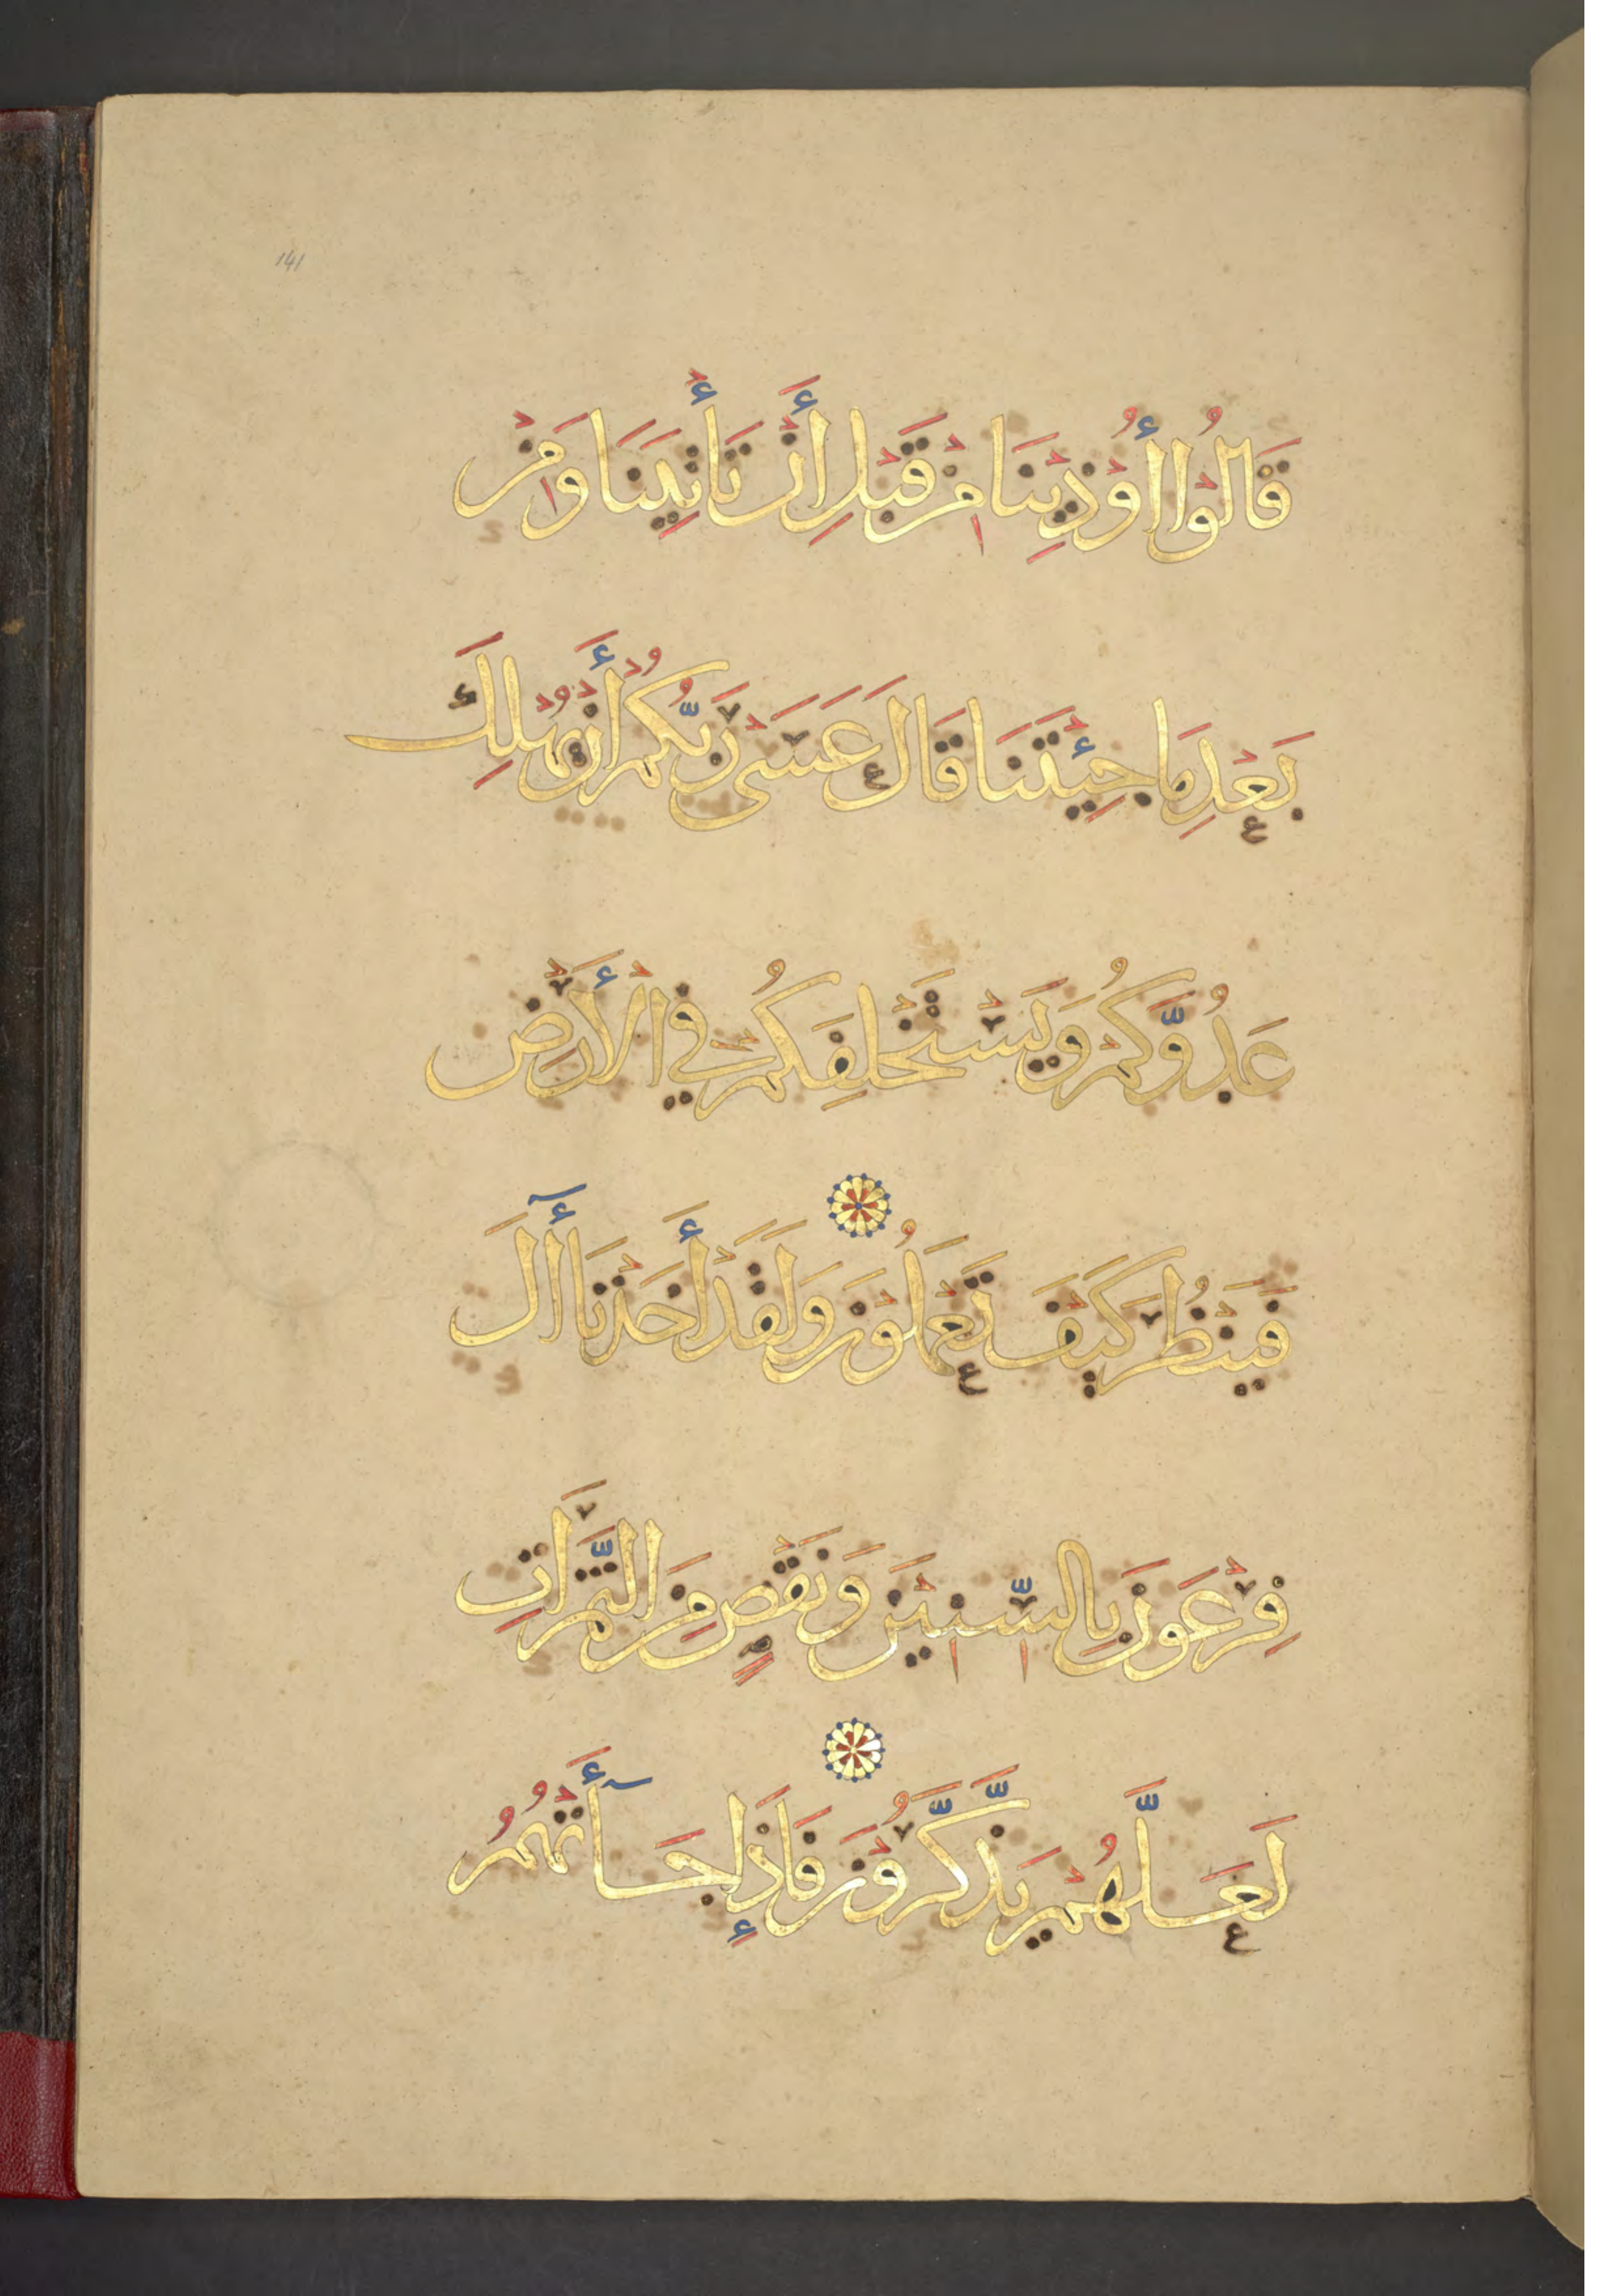 141
قَالُوْا أُوْذِيْنَا مِنْ قَبْلِ أَنْ تَأْتِيَنَا وَمِنْ
بَعْدِ مَا جِئْتَنَا قَالَ عَسَىْ رَبُّكُمْ أَنْ يُهْلِكَ
عَدُوَّكُمْ وَيَسْتَخْلِفَكُمْ فِي الْأَرْضِ
فَيَنْظُرَ كَيْفَ تَعْمَلُوْنَ وَلَقَدْ أَخَذْنَا أٓلَ
فِرْعَوْنَ بِالسِّنِيْنَ وَنَقْصٍ مِنَ الثَّمَرَاتِ
لَعَلَّهُمْ يَذَّكَّرُوْنَ فَاِذَا جَآأَتْهُمُ